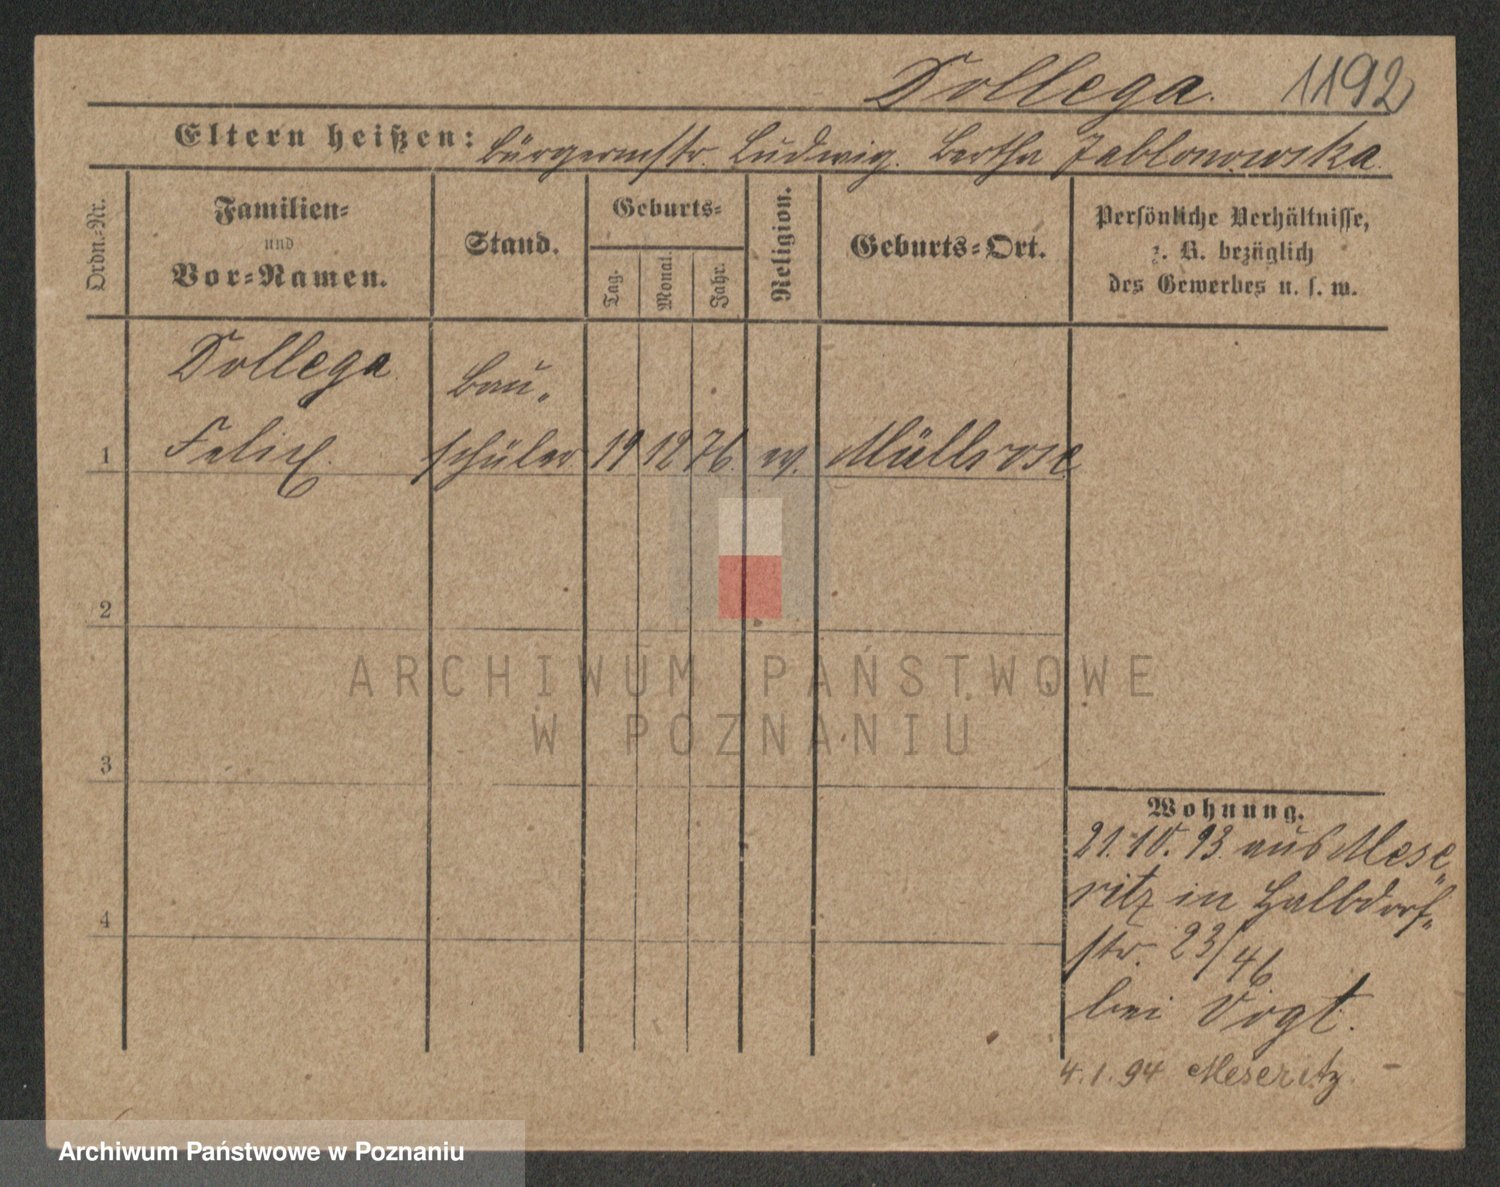 Dollega. 1192
Eltern heißen: Bürgermstr. Ludwig. Bertha Jablonowska
Ordn.-Nr.
Familien-
und
Vor-Namen.
Stand.
Geburts-
Tag.
Monat.
Jahr.
Religion.
Geburts-Ort.
Persönliche Verhältnisse,
z. B. bezüglich
des Gewerbes u. s. w.
Dollega Bau-
1 Felix. schüler 19 12 76. ev. Müllrose
2
3
4
Wohnung.
21.10.93. aus Mese-
ritz in Halbdorf-
str. 23/46
bei Vogt.
4.1.94 Meseritz
ARCHIWUM PAŃSTWOWE
W POZNANIU
Archiwum Państwowe w Poznaniu